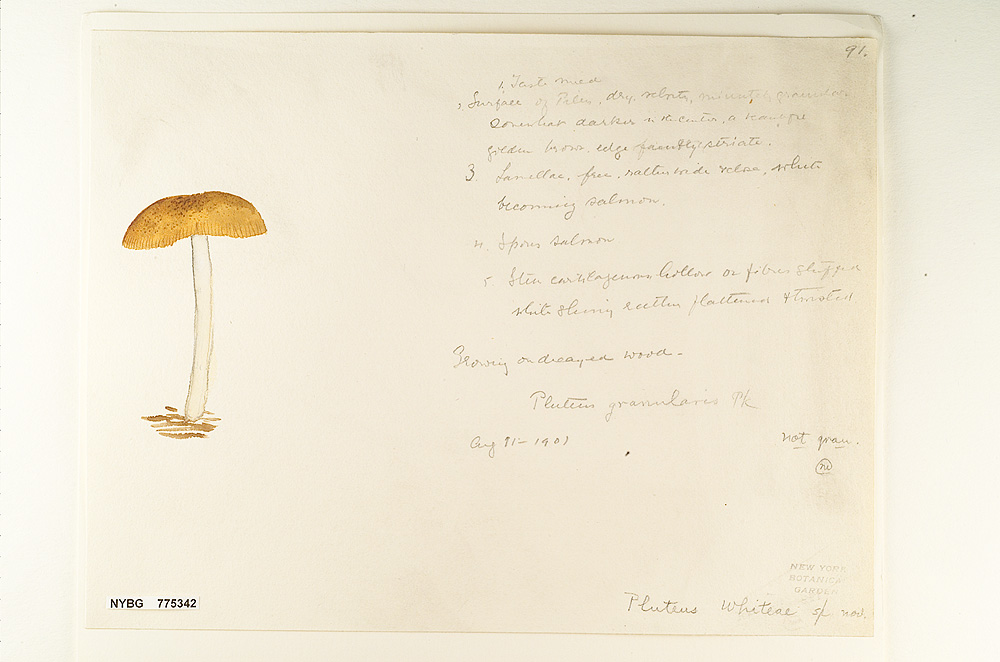 91.
1, Taste mild
2, Surface of Pileus, dry, velvety, minutely granular
somewhat darker in the center, a
golden brown, edge faintly striate.
3. Lamellae, free, rather wide close, white
becoming salmon.
4. Spores salmon
5. Stem cartilagenous hollow or fibres
white shiny rather flattened & twisted
Growing on decayed wood-
Pluteus granularis Pk
Aug 11- 1901
not gran.
NEW YORK
BOTANICAL
GARDEN
NYBG 775342
Pluteus Whiteae sp nov.